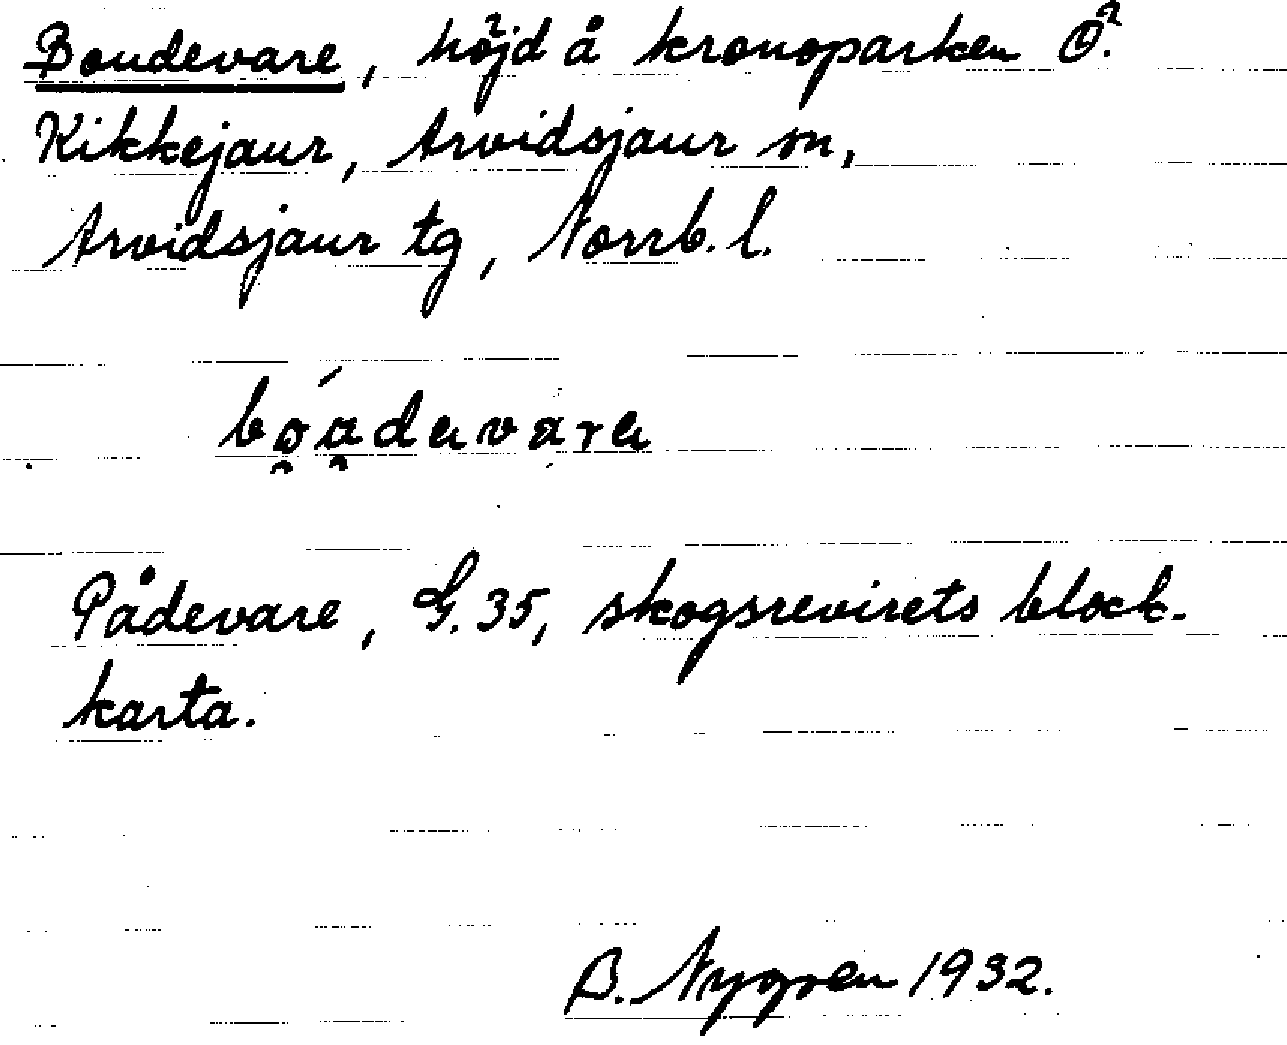 Boudevare, höjd å kronoparken Ö.
Kikkejaur, Arvidsjaur sn,
Arvidsjaur tg, Norrb. l.
Pådevare, G. 35, skogsrevirets block-
karta.
B. Nygren 1932.